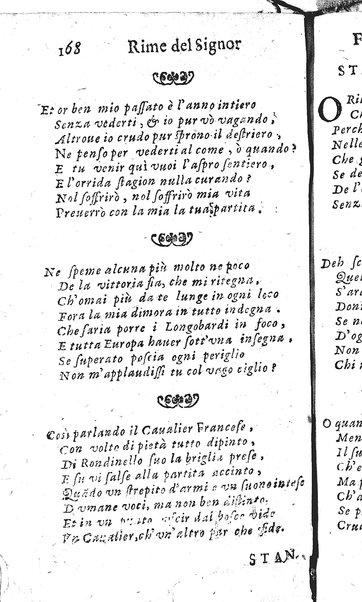 168 Rime del Signor
Et or ben mio passato è l'anno intiero
Senza vederti, & io pur vò vagando;
Altroue io crudo pur sprono il destriero,
Ne penso per vederti al come, ò quando?
E tu venir quì vuoi l'aspro sentiero,
E l'orrida stagion nulla curando?
Nol soffrirò, nol soffrirò mia vita
Preuerrò con la mia la tua partita.
Ne speme alcuna più molto ne poco
De la vittoria sia, che mi ritegna,
Ch'omai più da te lunge in ogni loco
Fora la mia dimora in tutto indegna.
Che saria porre i Longobardi in foco,
E tutta Europa hauer sott'vna insegna,
Se superato poscia ogni periglio
Non m'applaudissi tu col vago ciglio?
Così parlando il Caualier Francese,
Con volto di pietà tutto dipinto,
Di Rondinello suo la briglia prese,
E su vi salse alla partita accinto,
Quãdo vn strepito d'armi e vn suono intese
D'vmane voci, ma non ben distinto.
Et in vn vscir dal bosco vide
Vn Caualier, ch'vn'altro par che side.
STAN-
F
STA
O Ri
Ch
Perch
Nelle
Che
Se de
De l'
Senza
Deh
Quel
S'ar
Don
Se n
D'og
Non
Chi
O quan
Men
Il su
Ch'e
Ma p
Ch'a
Se p
Crud